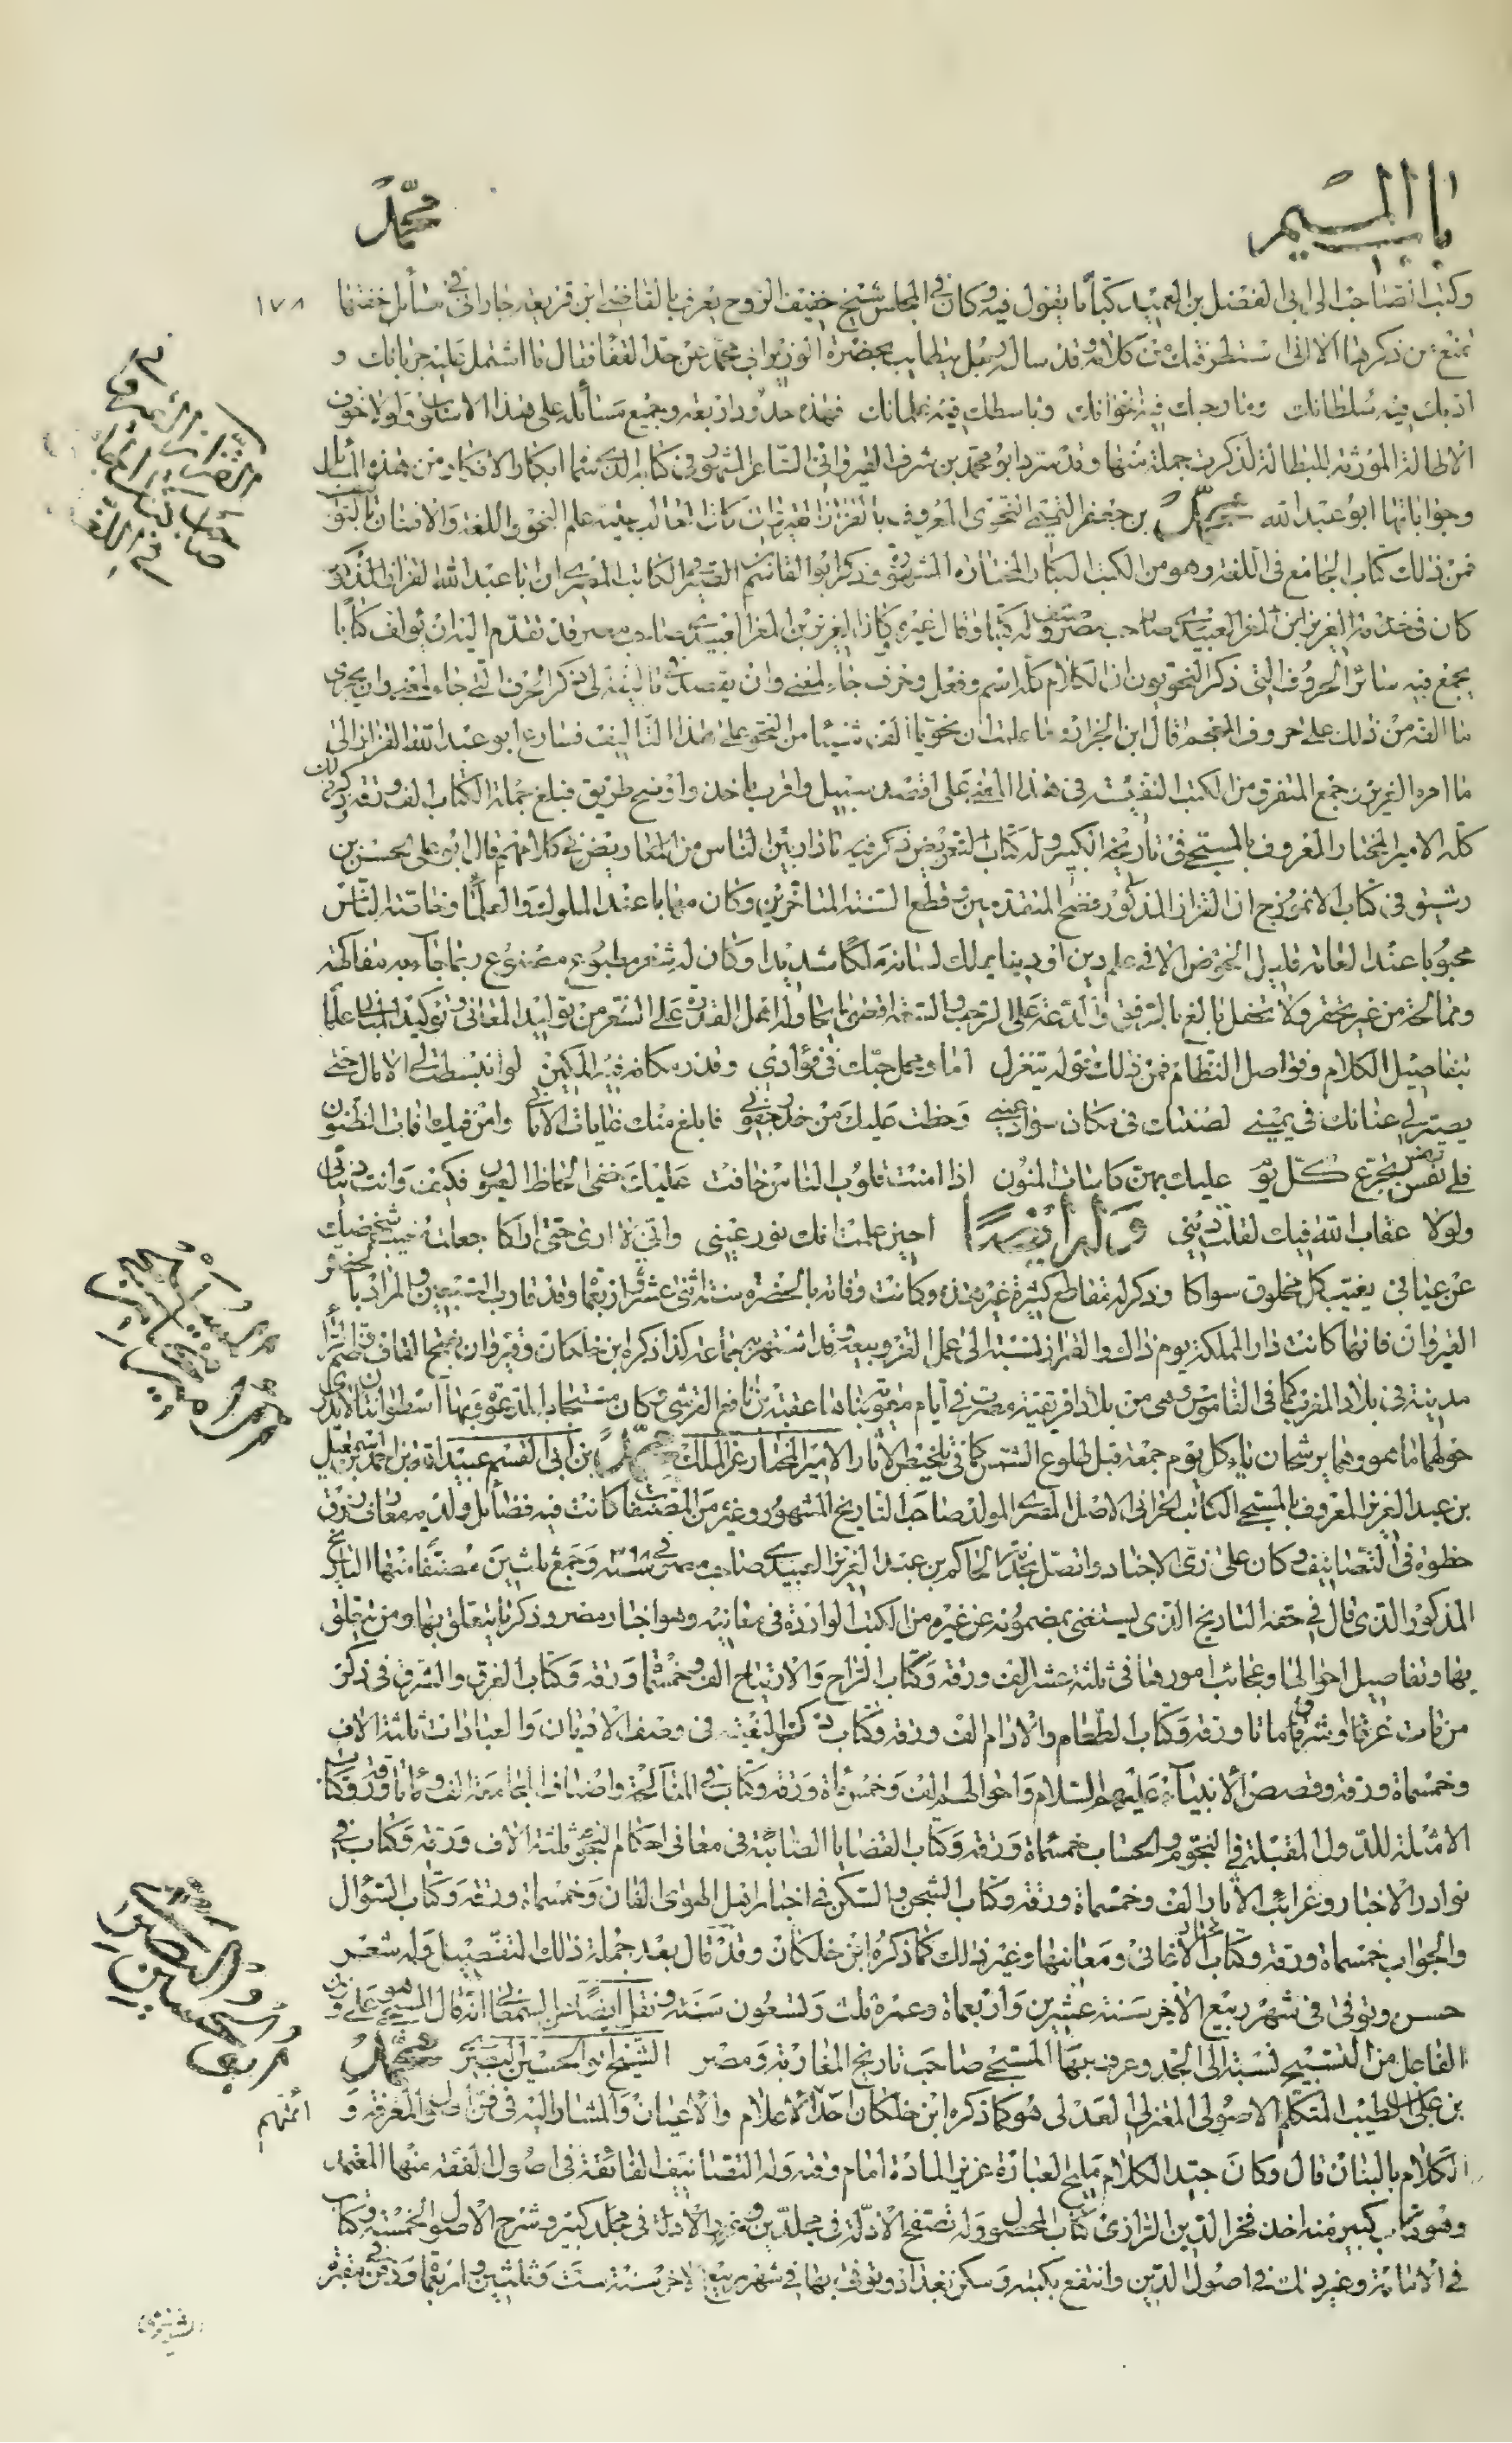 باب الميم
محمد
١٧٨
وكتب الصاحب الى ابى الفضل بن العميد كتابا يقول فيه وكان فى المجلس شيخ خفيف الروح يعرف بالقاضى ابن قريعة جارانى فى مسائل خفتها
تمنع من ذكرها الا انى استظرفت من كلامه وقد ساله رجل بحضرة الوزير ابى محمد عن حد القفا فقال ما اشتمل عليه جربانك و
ادبك فيه سلطانك ومازحك فيه اخوانك وباسطك فيه غلمانك فهذه حدود اربعة وجميع مسائله على هذا الاسلوب ولولا خوف
الاطالة المورثة للبطالة لذكرت جملة منها وقد سرد ابو محمد بن شرف القيروانى الشاعر المشهور فى كتابه الذى سماه ابكار الافكار من هذه المسائل
وجواباتها ابو عبد الله محمد بن جعفر التميمى النحوى المعروف بالقزاز القيروانى كان الغالب عليه علم النحو واللغة والافتنان بالتواليف
فمن ذلك كتاب الجامع فى اللغة وهو من الكتب الكبار المختارة المشهورة وذكر ابو القاسم بن الصيرفى الكاتب المصرى ان ابا عبد الله القزاز المذكور
كان فى خدمة العزيز ابن المعز العبيدى صاحب مصر وصنف له كتبا وقال غيره كان العزيز بن المعز العبيدى صاحب مصر قد تقدم اليه ان يؤلف كتابا
يجمع فيه سائر الحروف التى ذكر النحويون ان الكلام كله اسم وفعل وحرف جاء لمعنى وان يقصد فى تاليفه الى ذكر الحرف الذى جاء لمعنى وان يجرى
ما الفه من ذلك على حروف المعجم قال ابن الجزار وما علمت ان نحويا الف شيئا من النحو على هذا التاليف فسارع ابو عبد الله القزاز الى
ما امره العزيز من جمع المتفرق من الكتب النفيسة فى هذا المعنى على اقصد سبيل واقرب ماخذ واوضح طريق فبلغ جملة الكتاب الف ورقة ذكر ذلك
كله الامير المختار المعروف بالمسبحى فى تاريخه الكبير وله كتاب التعريض ذكر فيه ما دار بين الناس من المعاريض فى كلامهم قال ابو على الحسن بن
رشيق فى كتاب الانموذج ان القزاز المذكور فضح المتقدمين وقطع السنة المتاخرين وكان مهابا عند الملوك والعلماء وخاصة الناس
محبوبا عند العامة قليل الخوض الا فى علم دين او دنيا يملك لسانه ملكا شديدا وكان له شعر مطبوع مصنوع ربما جاء به مفاكهة
وممالحة من غير تحفز ولا تحفل يبلغ بالرفق والدعة على الرحب والسعة اقصى ما يحاوله اهل القدرة على الشعر من توليد المعانى وتوكيد المبانى علما
بتفاصيل الكلام وفواصل النظام فمن ذلك قوله يتغزل اما ومحل حبك فى فؤادى وقدر مكانه فيه المكين لو انبسطت لى الامال حتى
يصير لى عنانك فى يمينى لصنتك فى مكان سواد عينى وخطت عليك من حذر جفونى فابلغ منك غايات الامانى وامن فيك افات الظنون
فلى نفس تجرع كل يوم عليك بهن كاسات المنون اذا امنت قلوب الناس خافت عليك خفى الحاظ العيون فكيف وانت دنيائى
ولولا عقاب الله فيك لقلت دينى وله ايضا احين علمت انك نور عينى وانى لا ارى حتى اراكا جعلت مغيب شخصك
عن عيانى يغيب كل مخلوق سواكا وذكر له مقاطع كثيرة غير هذه وكانت وفاته بالحضرة سنة اثنى عشر واربعماة وقد قارب التسعين والمراد بالحضرة
القيروان فانها كانت دار المملكة يوم ذاك والقزاز نسبة الى عمل القز وبيعه وقد اشتهر به جماعة كذا ذكره ابن خلكان وقيروان بفتح القاف وضم الراء
مدينة فى بلاد المغرب كما فى القاموس وهى من بلاد افريقية مصرت فى ايام معوية بناها عقبة بن نافع القرشى وكان مستجاب الدعوة وبها اسطوانتان لا يدرى
حولهما ما هو وهما يرشحان ماء كل يوم جمعة قبل طلوع الشمس كما فى تلخيص الاثار الامير المختار عز الملك محمد بن ابى القسم عبيد الله بن احمد بن اسمعيل
بن عبد العزيز المعروف بالمسبحى الكاتب الحرانى الاصل المصرى المولد صاحب التاريخ المشهور وغيره من المصنفات كانت فيه فضائل ولديه معارف ورزق
حظوة فى التصانيف وكان على زى الاجناد واتصل بخدمة الحاكم بن عبد العزيز العبيدى صاحب مصر فى سنة ٣٩٨ وجمع ثلثين مصنفا منها التاريخ
المذكور الذى قال فى حقه التاريخ الذى يستغنى بمضمونه عن غيره من الكتب الواردة فى معانيه وهو اخبار مصر وذكر ما يتعلق بها ومن تعلق
بها وتفاصيل احوالها وعجائب امورها فى ثلثة عشر الف ورقة وكتاب الراح والارتياح الف وخمسماة ورقة وكتاب الغرق والشرق فى ذكر
من مات غرقا وشرقا ماتا ورقة وكتاب الطعام والادام الف ورقة وكتاب درك البغية فى وصف الاديان والعبادات ثلثة الاف
وخمسماة ورقة وقصص الانبياء عليهم السلام واحوالهم الف وخمسماة ورقة وكتاب فى المناكحة واصناف الجماع الف وماتا ورقة وكتاب
الامثلة للدول المقبلة فى النجوم والحساب خمسماة ورقة وكتاب القضايا الصائبة فى معانى احكام النجوم ثلثة الاف ورقة وكتاب فى
نوادر الاخبار وغرائب الاثار الف وخمسماة ورقة وكتاب الشجن والسكن فى اخبار اهل الهوى الفان وخمسماة ورقة وكتاب السؤال
والجواب خمسماة ورقة وكتاب مختار الاغانى ومعانيها وغير ذلك كما ذكره ابن خلكان وقد قال بعد جملة ذلك التفصيل وله شعر
حسن وتوفى فى شهر ربيع الاخر سنة عشرين واربعماة وعمره ثلث وتسعون سنة ونقل ايضا عن السمعانى انه قال المسبحى هو على وزن
الفاعل من التسبيح نسبة الى الجد وعرف بها المسبحى صاحب تاريخ المغاربة ومصر الشيخ ابو الحسين البصرى محمد
بن على الطيب المتكلم الاصولى المعتزلى العدلى هو كما ذكره ابن خلكان احد الاعلام والاعيان والمشار اليه فى فن اولى المعرفة و ائمتهم
الكلام بالبنان قال وكان جيد الكلام مليح العبارة عزيز المادة امام وقته وله التصانيف الفائقة فى اصول الفقه منها المعتمد
وهو كتاب كبير منه اخذ فخر الدين الرازى كتاب المحصول وله تصفح الادلة فى مجلدين وغرر الادلة فى مجلد كبير وشرح الاصول الخمسة وكتاب
فى الامامة وغير ذلك فى اصول الدين وانتفع بكتبه وسكن بغداد وتوفى بها فى شهر ربيع الاخر سنة ست وثلثين واربعماة ودفن فى مقبرة
الشونيزى